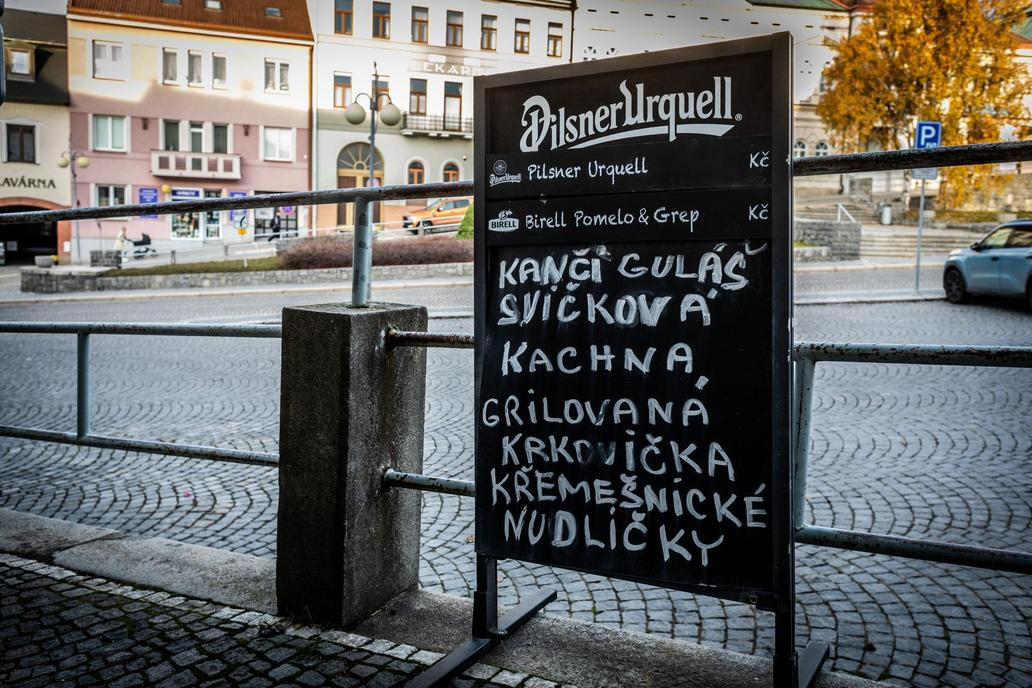 KAVÁRNA
LÉKÁRNA
P
Pilsner Urquell
Pilsner Urquell Kč
BIRELL Birell Pomelo & Grep Kč
KANČÍ GULÁŠ
SVÍČKOVÁ
KACHNA,
GRILOVANÁ
KRKOVIČKA
KŘEMEŠNICKÉ
NUDLIČKY